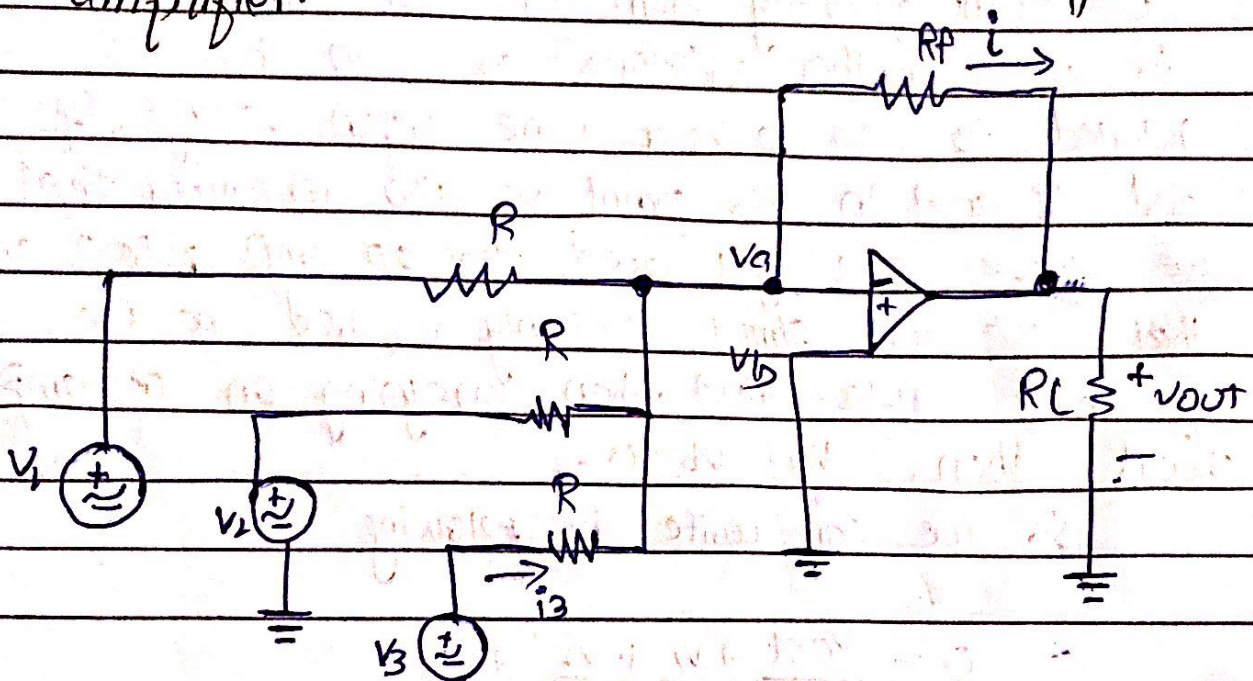 amplifier.
Rf i
R
Va
R
Vb
RL + vout
-
V1
V2
R
i3
V3